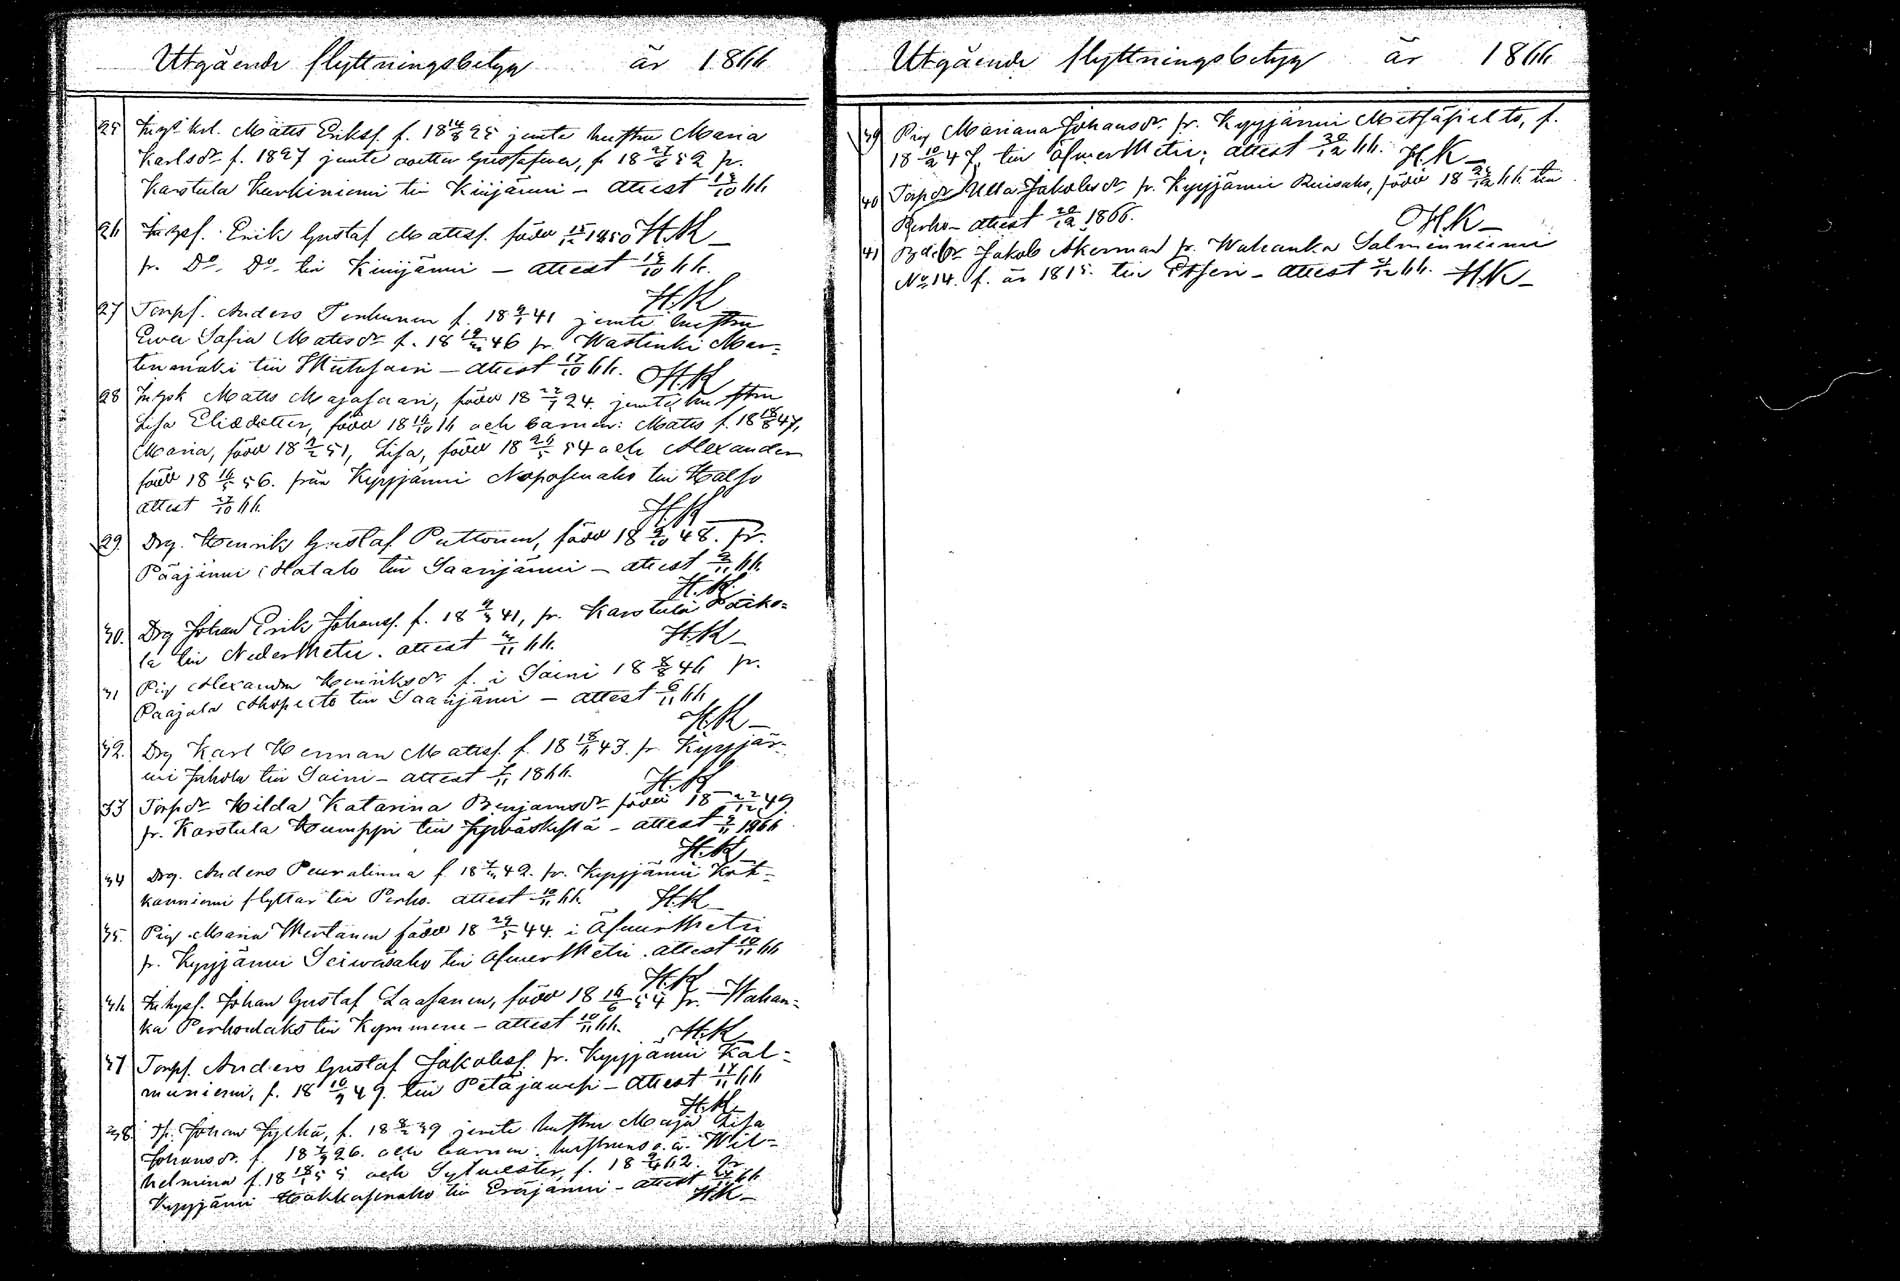 Utgående flyttningsbetyg år 1866
25 Inhys krl. Matts Eriksf. f. 18 14/8 25 jemte hustru Maria
Karlsdr. f. 1827 jemte dotter Gustafva, f. 18 27/6 52 fr.
Karstula Kurkiniemi till Kivijärvi – attest 13/10 66
H.K.
26 Inhysf. Erik Gustaf Mattsf. född 15/12 1850
fr. Do. Do. till Kivijärvi – attest 13/10 66.
H.K.
27 Torpf. Anders Penkunen f. 18 9/1 41 jemte hustru
Ewa Sofia Mattsdr. f. 18 19/3 46 fr. Wastinki Mar=
tinmäki till Wiitasaari – attest 17/10 66.
H.K.
28 Inhys Matts Majasaari, född 18 22/7 24. jemte hustru
Lisa Eliedotter, född 18 16/10 16 och barnen: Matts f. 18 18/8 47,
Maria, född 18 2/2 51, Lisa, född 18 26/5 54 och Alexander
född 18 16/5 56. från Kyyjärvi Noposenaho till Halso
attest 27/10 66
H.K.
29 Drg. Henrik Gustaf Puttonen, född 18 9/10 48. fr.
Pääjärvi Hatalo till Saarijärvi – attest 2/11 66.
H.K.
30. Drg Johan Erik Johansf. f. 18 4/3 41, fr. Karstula Poiko=
la till NederWetil. attest 3/11 66.
H.K.
31 Pig Alexandra Henriksdr f. i Soini 18 8/8 46 fr.
Paajala Ahopelto till Saarijärvi – attest 6/11 66
H.K.
32. Drg Karl Herman Mattsf. f. 18 18/11 43. fr. Kyyjär=
vi Jokola till Soini – attest 7/11 1866.
H.K.
33 Torpdr Hilda Katarina Benjamsdr född 18 22/12 49
fr. Karstula Humppi till Jyväskylä – attest 9/11 1866
H.K.
34 Drg. Anders Peuralinna f 18 7/3 42. fr. Kyyjärvi Kok=
kauniemi flyttar till Perho. attest 10/11 66.
H.K.
35. Pig Maria Wertanen född 18 29/5 44. i ÖfverWetil
fr. Kyyjärvi Leiwäsaho till ÖfverWetil. attest 10/11 66
H.K.
36 Inhysf. Johan Gustaf Laasanen, född 18 16/6 54 fr. Wahan=
ka Perhoulaks till Kymmene – attest 10/11 66.
H.K.
37 Torpf. Anders Gustaf Jakobsf. fr. Kyyjärvi Kal=
muniemi, f. 18 16/9 49. till Petäjävesi – attest 17/11 66
H.K.
38. Tp. Johan Jylhä, f. 18 8/2 39 jemte hustru Maja Lisa
Johansdr. f. 18 7/9 26. och barnen: hustruns o.ä. Wil=
helmina f. 18 18/1 55 och Sylvester, f. 18 2/4 62. fr.
Kyyjärvi Hokkasenaho till Evijärvi – attest 24/11 66
H.K.
Utgående flyttningsbetyg år 1866
39 Pig Mariana Johansdr. fr. Kyyjärvi Metsäpelto, f.
18 10/2 47, till ÖfverWetil; attest 20/12 66. H.K.
40 Torpdr Ulla Jakobsdr fr. Kyyjärvi Ruisaho, född 18 24/12 66 till
Perho – attest 20/12 1866. H.K.
41 Jakob Åkerman fr. Wahanka Salmenniemi
No 14. f. år 1815. till Etseri – attest 31/12 66. H.K.